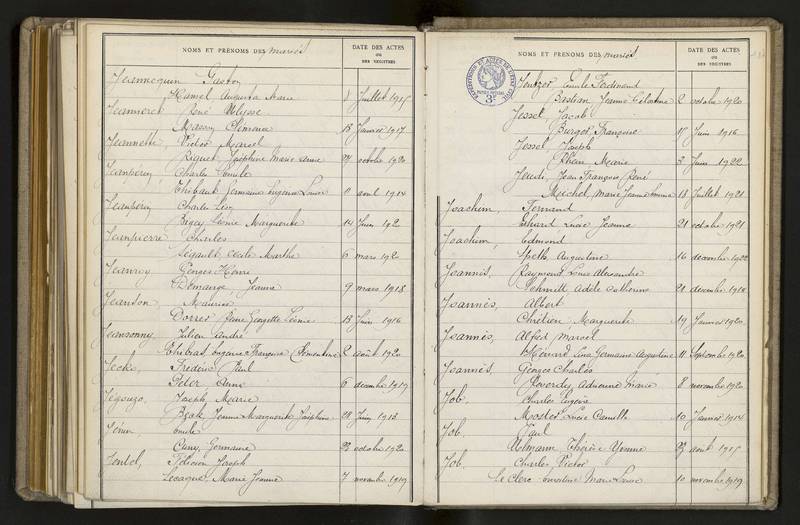 NOMS ET PRÉNOMS DES mariés
DATE DES ACTES
OU
DES REGISTRES
Jeannequin Gaston
Hamel Augusta Marie 8 Juillet 1915
Jeannerck René Ulysse
Massy Clémence 13 Janvier 1917
Jeannette, Victor Marcel
Riquet Joséphine Marie Anne 24 octobre 1920
Jeanperin, Charles Emile
Thibaut Germaine Eugénie Louise 11 avril 1914
Jeanperin, Charles Léon
Bigey Léonie Marguerite 14 Juin 192
Jeanpierre Charles
Sigault Cécile Marthe 6 mars 1920
Jeanroy Georges Henri
Demange, Jeanne 9 mars 1918
Jeanson, Maurice
Dorrer Georgette Léonie 13 Juin 1916
Jeansonny, Julien André
Thiébat, Françoise Clémentine 2 août 1920
Jecko, Frédéric Paul
Péler Anna 6 décembre 1919
Jegouzo, Joseph Marie
Jeanne Marguerite Joséphine 28 Juin 1913
Jénin Emile
Cuny, Germaine 23 octobre 1920
Jentel, Félicien Joseph
Lecaque, Marie Jeanne 7 novembre 1919
NOMS ET PRÉNOMS DES mariés
DATE DES ACTES
OU
DES REGISTRES
Jentzer Emile Ferdinand
Bastian Jeanne Célestine 2 octobre 1920
Jessel, Jacob
Burger Françoise 17 Juin 1916
Jessel Joseph
Rhein Marie 3 Juin 1922
Jeudi, Jean François René
Michel, Marie Jeanne 18 Juillet 1921
Joachim, Fernand
Lucie Jeanne 21 octobre 1921
Joachim, Edmond
Augustine 16 décembre 1922
Joannès, Raymond Louis Alexandre
Schmitt Adèle 21 décembre 1918
Joannès, Albert
Chrétien Marguerite 19 Janvier 1920
Joannès, Alfred Marcel
Lina Germaine Augustine 11 Septembre 1920
Joannès, Georges Charles
Reverdy Adrienne Marie 8 novembre 1920
Job, Charles Eugène
Moster Lucie Camille 10 Janvier 1914
Job, Paul
Ulmann Thérèse Yvonne 23 août 1915
Job, Charles Victor
Le Clerc Marie Louise 10 novembre 1919